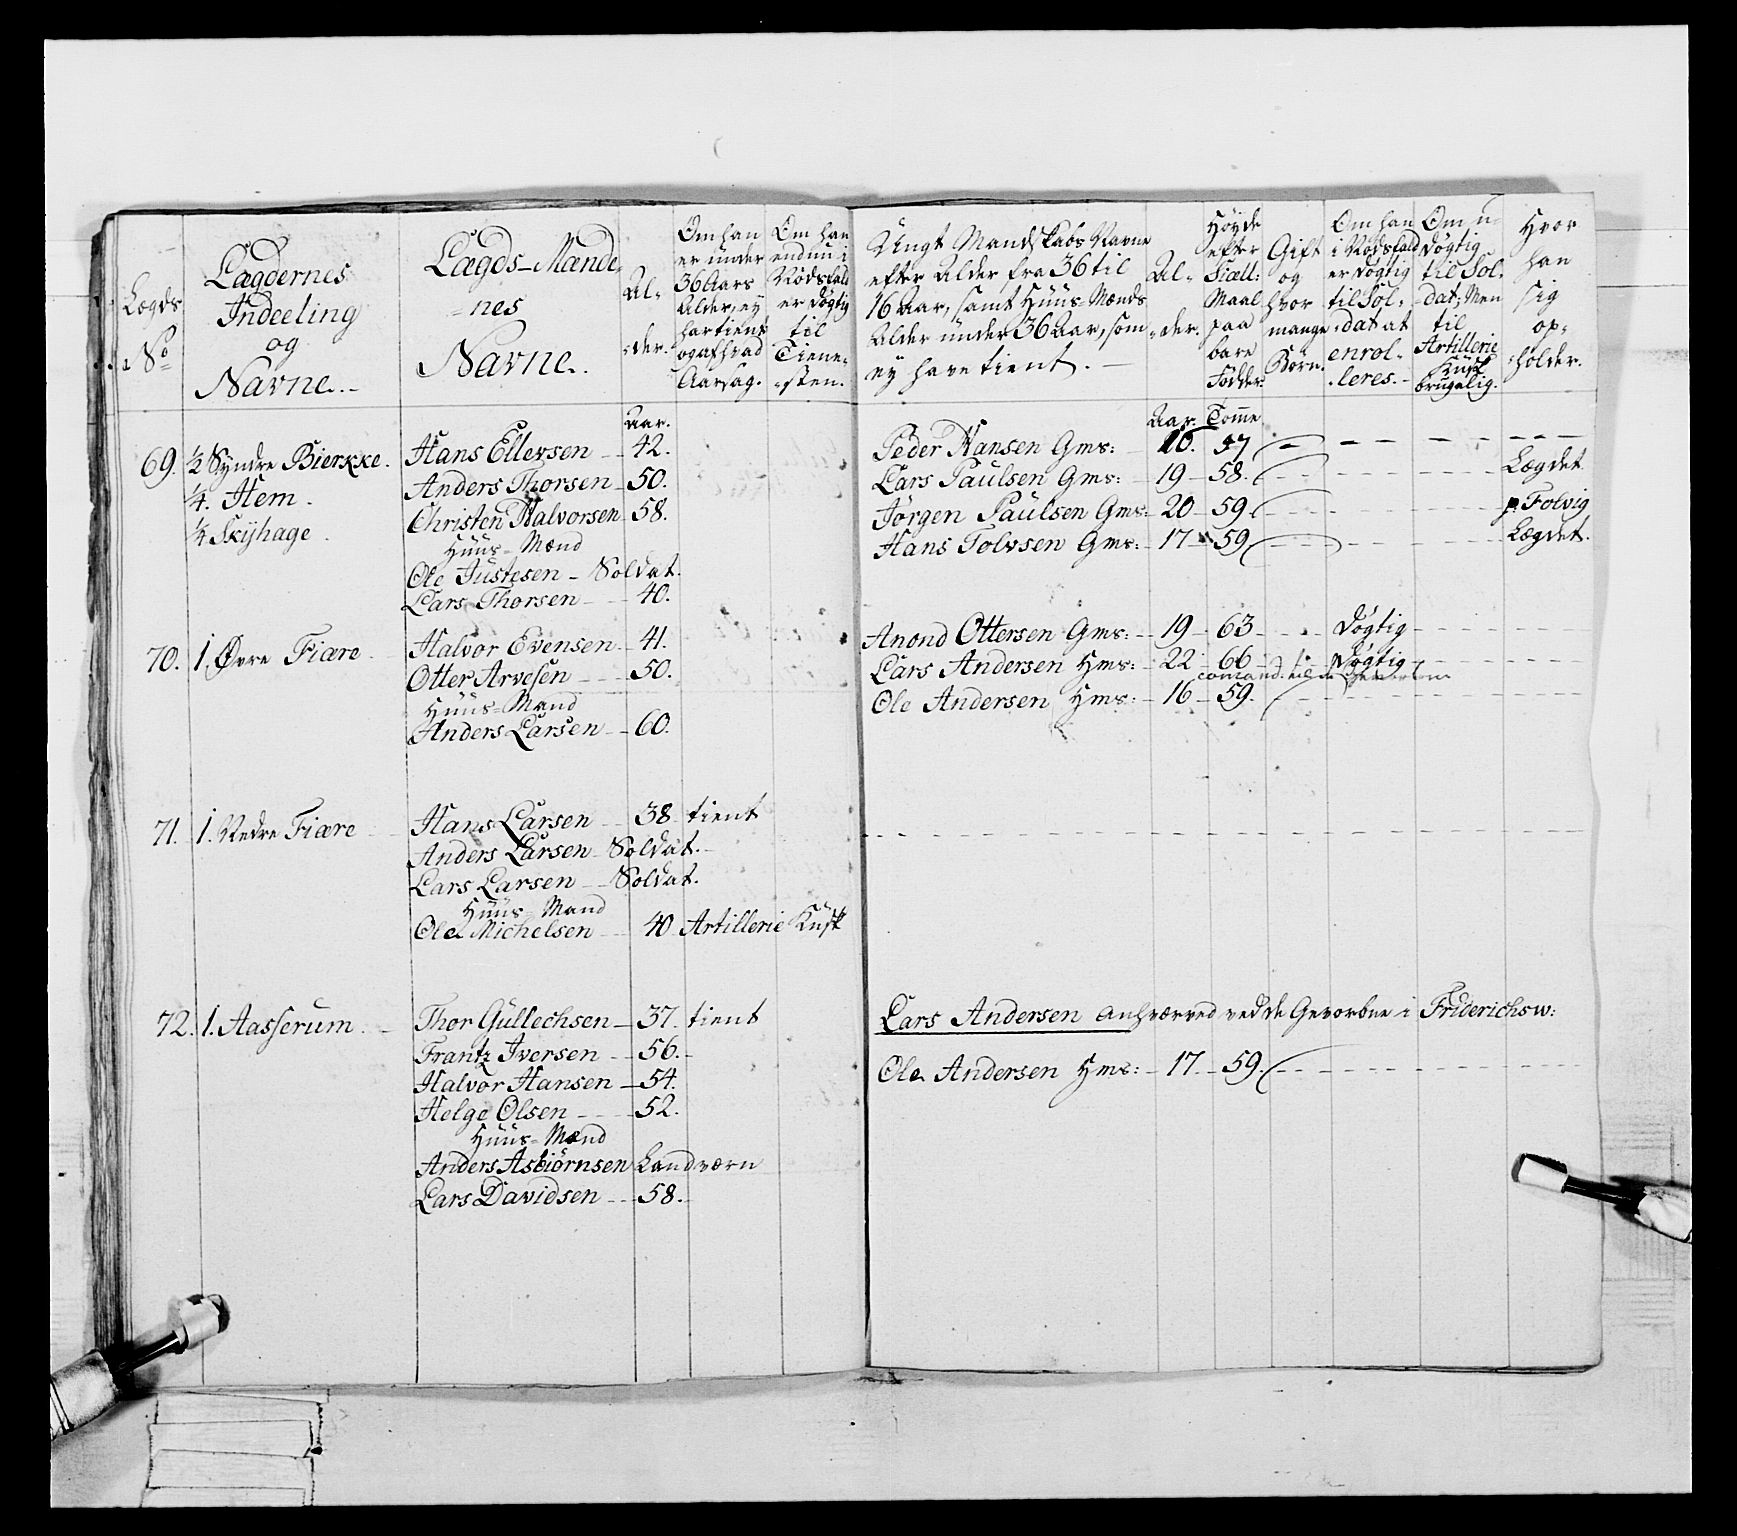 Lægds No
Lægdernes Indeeling og Navne.
Lægds-Mændenes Navne.
Al-der.
Om han er under 36 Aars Alder, ey har tient og af hvad Aarsag.
Om han endnu i Nødsfald er døgtig til Tiene-sten.
Ungt Mandskabs Navne efter Alder fra 36 til 16 aar, samt Huus Mænds Alder under 36 Aar, som ey have tient.
Al-der.
Høyde efter Siæll: Maal paa bare Fødder.
Gift og hvor mange Børn.
Om han i Nødsfald er døgtig til Sol-dat at enrol-leres.
Om u-døgtig til Sol-dat; Men til Artillerie Kusk brugelig.
Hvor han sig op-holder.
Aar.
Aar. Tomme
69. ½ Syndre Bierkke. Hans Ellevsen 42. Peder Hansen Gms: 20. 57
¼. Hem. Anders Thorsen 50. Lars Paulsen Gms: 19 58. Lægdet.
¼ Skyhage Christen Halvorsen 58. Jörgen Paulsen Gms: 20 59 p. Folvig
Huus-Mænd Hans Tolvsen Gms: 17 59 Lægdet.
Ole Justesen - Soldat.
Lars Thorsen 40.
70. 1. Øvre Fiære Halvor Evensen 41. Anond Ottersen Gms: 19 63 Døgtig
Otter Arvesen 50. Lars Andersen Hms: 22 66 Døgtig
Huus-Mand Ole Andersen Hms: 16 59.
Anders Larsen 60.
71. 1. Nedre Fiære Hans Larsen 38 tient
Anders Larsen Soldat.
Lars Larsen Soldat.
Huus-Mand
Ole Michelsen 40 Artillerie Kusk
72. 1. Aasserum Thor Gullechsen 37. tient Lars Andersen anhværved ved de Gevorbne i Friderichsw:
Frantz Iversen 56. Ole Andersen Hms: 17 59.
Halvor Hansen 54.
Helge Olsen 52.
Huus-Mænd
Anders Asbiörnsen Landværn
Lars Davidsen 58.